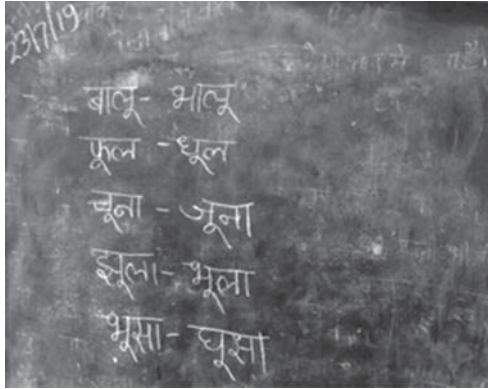 23/7/19
बालू - भालू
फूल - धूल
चूना - जूना
झूला - भूला
भूसा - घूसा